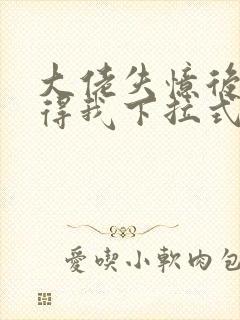 大佬失憶後
得我下拉式
愛喫小軟肉包